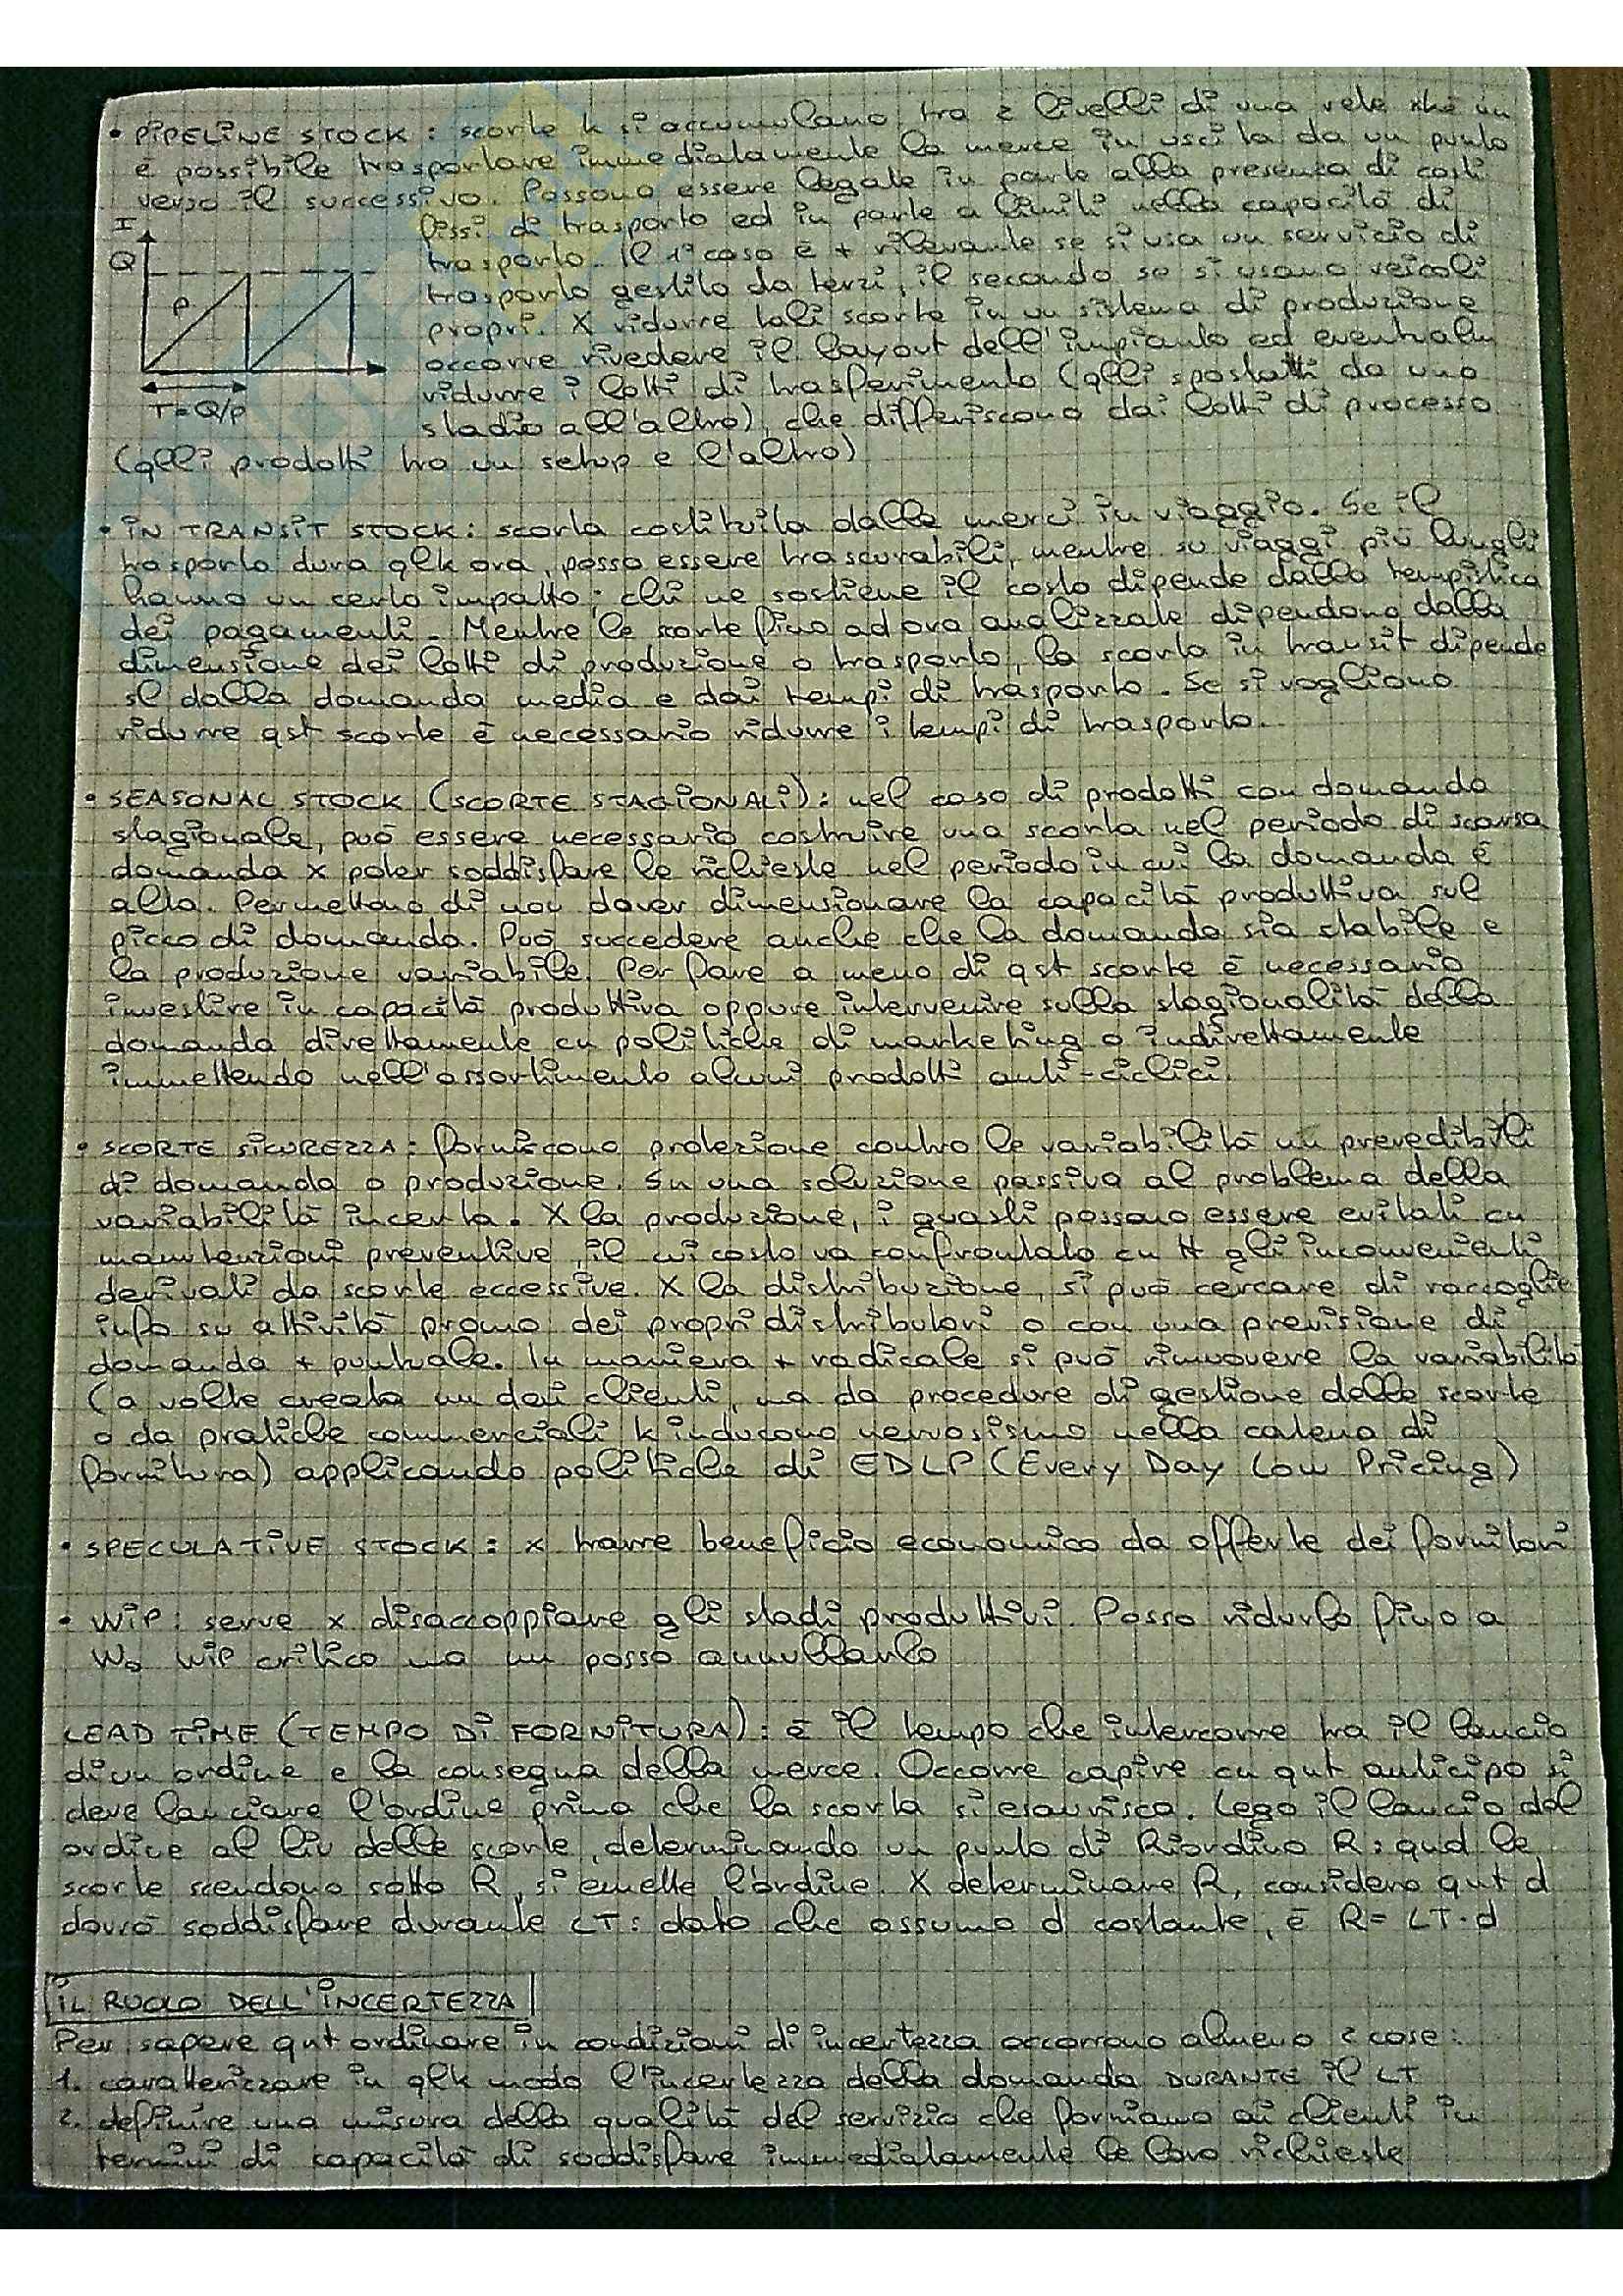 • PIPELINE STOCK: scorte k si accumulano tra 2 livelli di una rete xké un
è possibile trasportare immediatamente la merce in uscita da un punto
verso il successivo. Possono essere legate in parte alla presenza di costi
fissi di trasporto ed in parte a limiti nella capacità di
trasporto. Il 1° caso è + rilevante se si usa un servizio di
trasporto gestito da terzi, il secondo se si usano veicoli
propri. X ridurre tali scorte in un sistema di produzione
occorre rivedere il layout dell'impianto ed eventualm
ridurre i lotti di trasferimento (qlli spostatti da uno
stadio all'altro), che differiscono dai lotti di processo
(qlli prodotti tra un setup e l'altro)
I
Q
p
T=Q/p
• IN TRANSIT STOCK: scorta costituita dalle merci in viaggio. Se il
trasporto dura qlk ora, posso essere trascurabili, mentre su viaggi più lunghi
hanno un certo impatto; chi ne sostiene il costo dipende dalla tempistica
dei pagamenti. Mentre le scorte fino ad ora analizzate dipendono dalla
dimensione dei lotti di produzione o trasporto, la scorta in transit dipende
sl dalla domanda media e dai tempi di trasporto. Se si vogliono
ridurre qst scorte è necessario ridurre i tempi di trasporto.
• SEASONAL STOCK (SCORTE STAGIONALI): nel caso di prodotti con domanda
stagionale, può essere necessario costruire una scorta nel periodo di scarsa
domanda x poter soddisfare le richieste nel periodo in cui la domanda è
alta. Permettono di non dover dimensionare la capacità produttiva sul
picco di domanda. Può succedere anche che la domanda sia stabile e
la produzione variabile. Per fare a meno di qst scorte è necessario
investire in capacità produttiva oppure intervenire sulla stagionalità della
domanda direttamente cn politiche di marketing o indirettamente
immettendo nell'assortimento alcuni prodotti anti-ciclici.
• SCORTE SICUREZZA: forniscono protezione contro le variabilità un prevedibili
di domanda o produzione. Sn una soluzione passiva al problema della
variabilità incerta. X la produzione, i guasti possono essere evitati cn
manutenzioni preventive, il cui costo va confrontato cn tt gli inconvenienti
derivati da scorte eccessive. X la distribuzione, si può cercare di raccoglie
info su attività promo dei propri distributori o con una previsione di
domanda + puntuale. In maniera + radicale si può rimuovere la variabilità
(a volte creata un dai clienti, ma da procedure di gestione delle scorte
o da pratiche commerciali k inducono nervosismo nella catena di
fornitura) applicando politiche di EDLP (Every Day Low Pricing)
• SPECULATIVE STOCK: x trarre beneficio economico da offerte dei fornitori
• WIP: serve x disaccoppiare gli stadi produttivi. Posso ridurlo fino a
W₀ WIP critico ma un posso annullarlo
LEAD TIME (TEMPO DI FORNITURA): è il tempo che intercorre tra il lancio
di un ordine e la consegna della merce. Occorre capire cn qnt anticipo si
deve lanciare l'ordine prima che la scorta si esaurisca. Lego il lancio del
ordice al liv delle scorte, determinando un punto di Riordino R: qnd le
scorte scendono sotto R, si emette l'ordine. X determinare R, considero qnt d
dovrò soddisfare durante LT: dato che assumo d costante, è R = LT·d
IL RUOLO DELL'INCERTEZZA
Per sapere qnt ordinare in condizioni di incertezza occorrono almeno 2 cose:
1. caratterizzare in qlk modo l'incertezza della domanda DURANTE il LT
2. definire una misura della qualità del servizio che forniamo ai clienti in
termini di capacità di soddisfare immediatamente le loro richieste